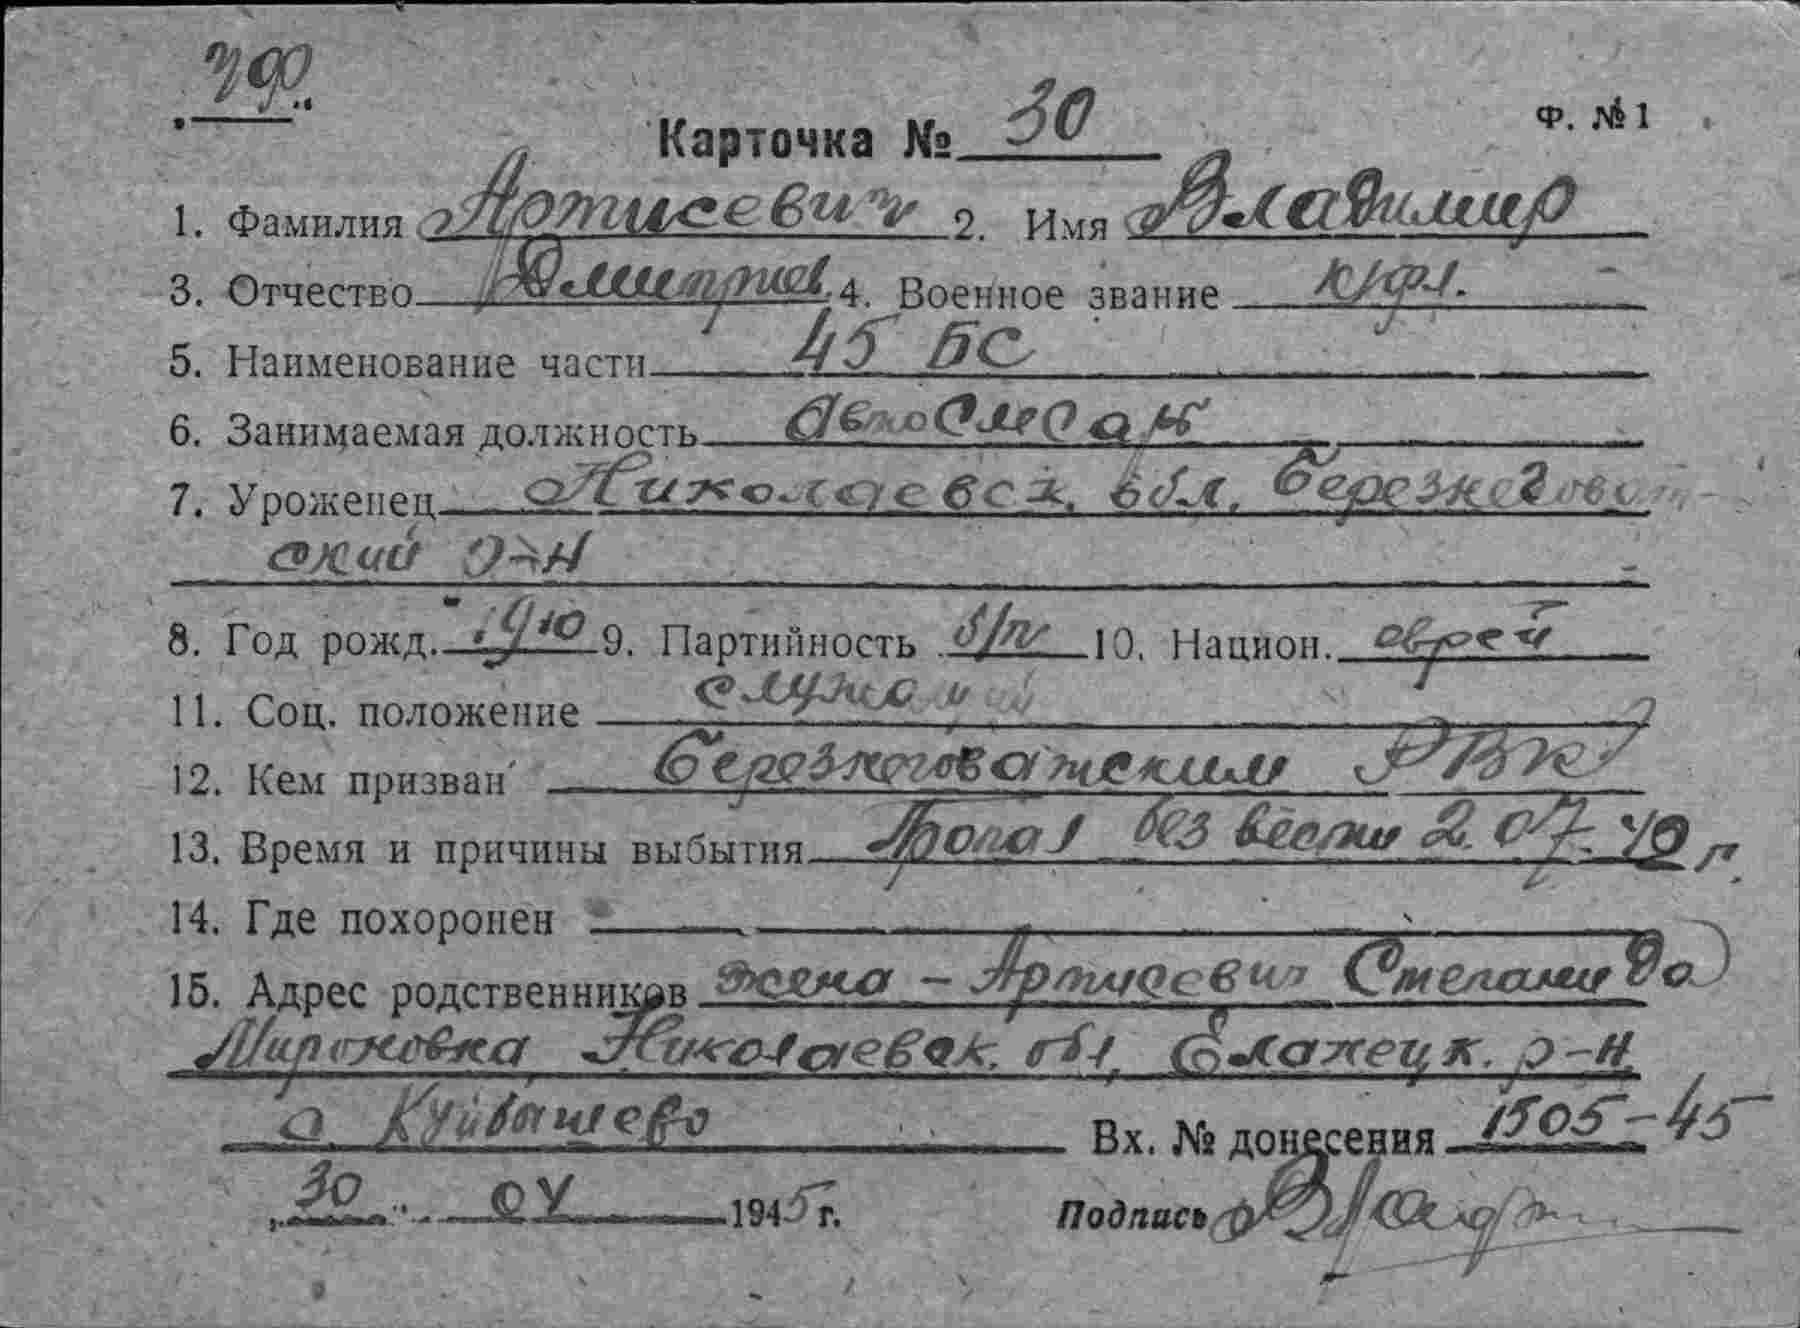 ЧФ
Карточка № 30 Ф. №1
1. Фамилия Артисевич 2. Имя Владимир
3. Отчество Дмитриев. 4. Военное звание к/фл.
5. Наименование части 45 БС
6. Занимаемая должность
7. Уроженец Николаевск. обл. Березнеговат-
ский р-н
8. Год рожд. 1910 9. Партийность б/п 10. Национ. еврей
11. Соц. положение служащий
12. Кем призван Березнеговатским РВК
13. Время и причины выбытия Пропал без вести 2.07.42 г.
14. Где похоронен
15. Адрес родственников жена - Артисевич Степанида
Мироновна Николаевск. обл, Еланецк. р-н
с. Куйбышево Вх. № донесения 1505-45
30 05 1945 г. Подпись